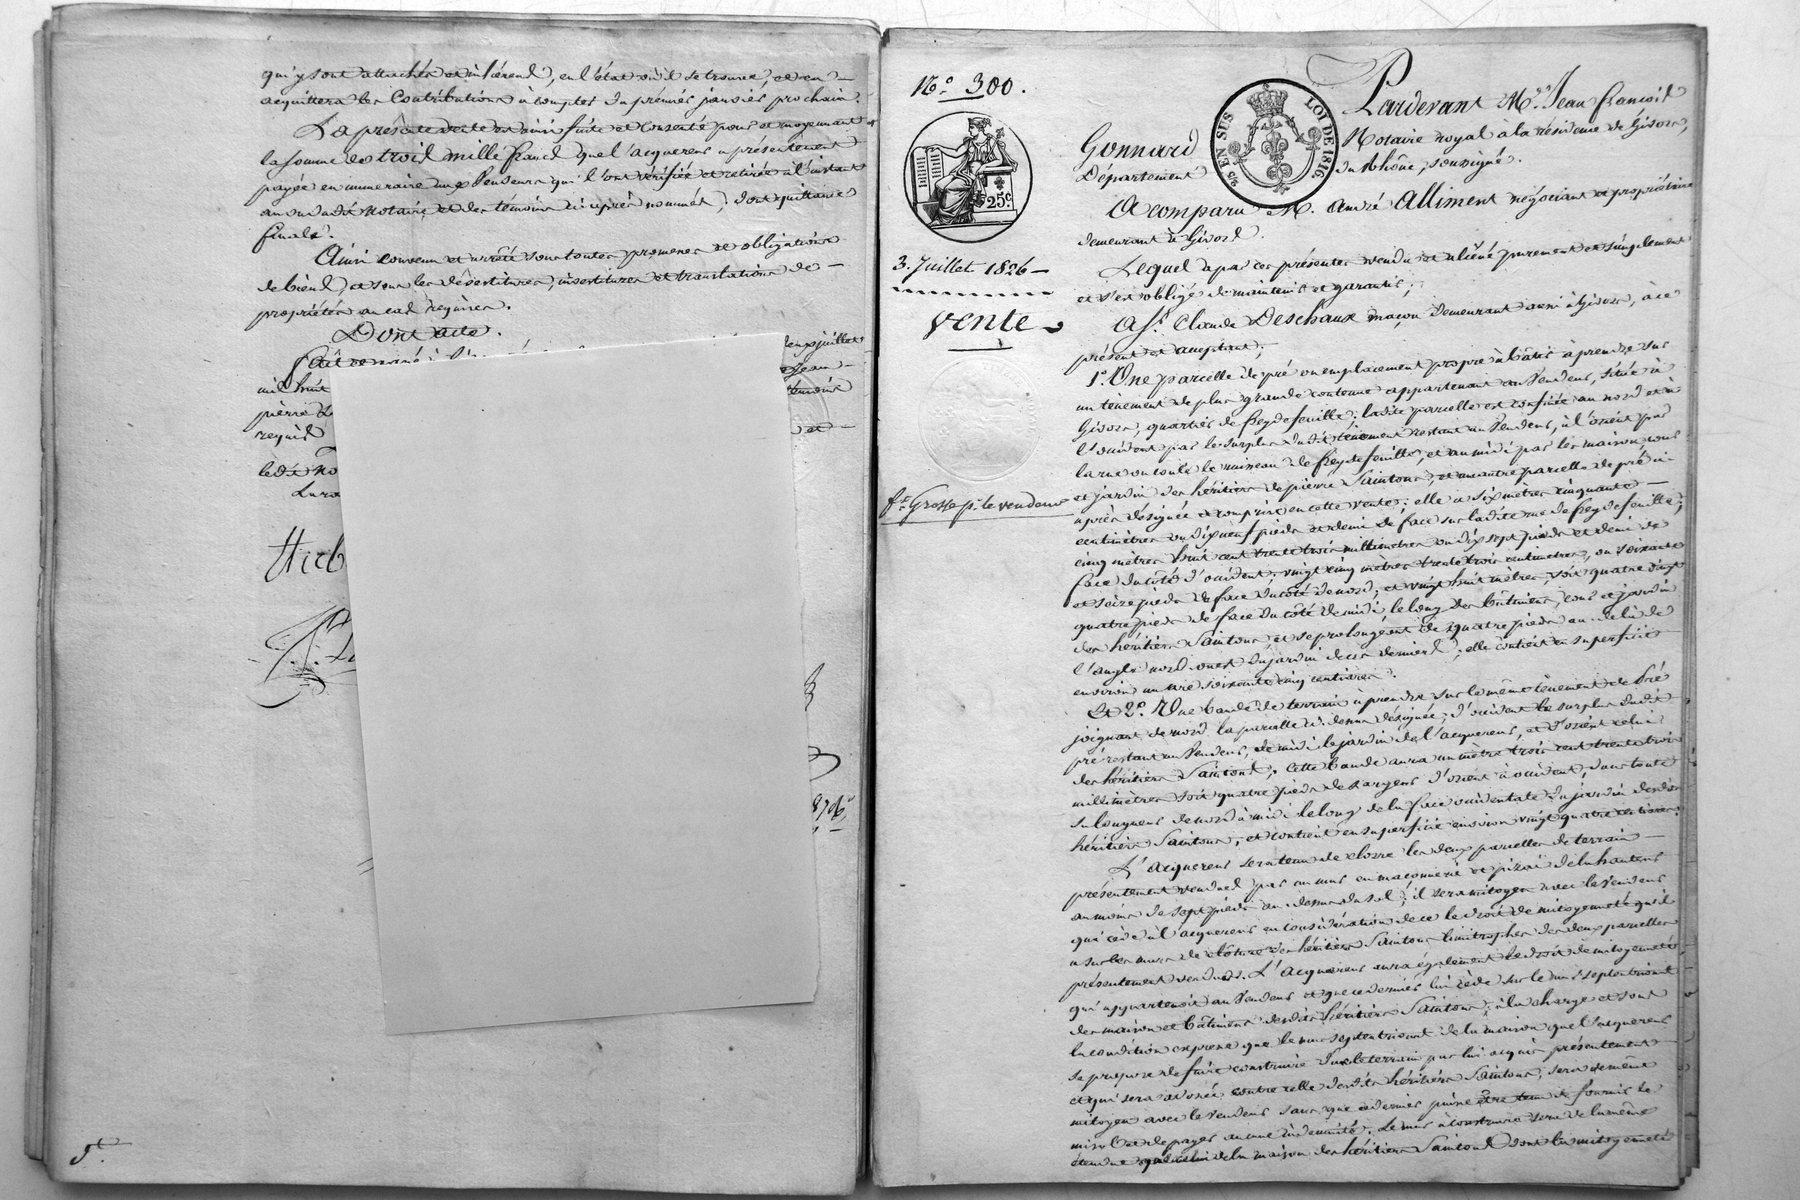 qui y sont attachés et inhérents, en l'état où il se trouve, et en
acquittera les Contributions à compter du premier janvier prochain.
La présente vente est ainsi faite et consentie pour et moyennant
la somme de trois mille francs que l'acquereur a présentement
payée en numeraire au Vendeur qui l'a vérifiée et retirée à l'instant
au vu dudit Notaire et des témoins ci après nommés, dont quittance
finale.
Ainsi convenu et arrêté sous toutes promesses et obligations
de biens, et sous les désestitures, investitures et translations de
propriétés au cas requises.
Dont acte.
Fait et passé à
juillet
mil huit
Jean
pierre
témoins
requis
et
ledit No
Hieb
5e.
N.º 300.
25c
3. Juillet 1826
Vente
fe Grosse pr. le vendeur
25 EN SUS
LOI DE 1816.
Pardevant Me. Jean françois
Gonnard Notaire royal à la résidence de Givors,
Département du Rhône, soussigné.
A comparu M. André Alliment négociant et propriétaire
demeurant à Givors.
Lequel a par ces présentes vendu et aliéné purement et simplement
et s'est obligé de maintenir et garantir,
A Sr. Claude Deschaux maçon demeurant aussi à Givors, à ce
présent et acceptant,
1º. Une parcelle de pré ou emplacement propre à bâtir à prendre sur
un tènement de plus grande contenue appartenant au Vendeur, située à
Givors, quartier de freydefeuille; ladite parcelle est confinée au nord et à
l'occident par le surplus dudit tènement restant au Vendeur, à l'orient par
la rue ou coule le ruisseau de freydefeuille, et au midi par les maison, cour
et jardin des héritiers de pierre Saintour, et encore parcelle de pré ci-
après désignée et comprise en cette vente; elle a six mètres cinquante
centimètres ou dix neuf pieds et demi de face sur ladite rue de freydefeuille;
cinq mètres huit cent trente trois millimètres ou dix sept pieds et demi de
face du côté d'occident; vingt cinq mètres trente trois centimètres, ou soixante
et seize pieds de face du côté de nord, et vingt huit mètres, soit quatre vingt
quatre pieds de face du côté de midi, le long des bâtiment, cour et jardin
des héritiers Saintour, et se prolongeant de quatre pieds au delà de
l'angle nord ouest du jardin de ces derniers; elle contient en superficie
environ un are soixante cinq centiares.
Et 2º. Une bande de terrain à prendre sur le même tènement de Pré
joignant de nord la parcelle ci dessus désignée; d'occident le surplus dudit
pré restant au Vendeur, de midi le jardin de l'acquereur, et d'orient celui
des héritiers Saintour; cette bande aura un mètre trois cent trente trois
millimètres soit quatre pieds de largeur d'orient à occident, dans toute
sa longueur de nord à midi le long de la face occidentale du jardin desdits
héritiers Saintour, et contient en superficie environ vingt quatre centiares.
L'acquereur sera tenu de clorre les deux parcelles de terrain
présentement vendues par un mur en maçonnerie et pizai de la hauteur
au moins de sept pieds au dessus du sol; il sera mitoyen avec le Vendeur
qui cède à l'acquereur en considération de ce le droit de mitoyenneté qu'il
a sur les murs de clôture des héritiers Saintour limitrophes des deux parcelles
présentement vendues. L'acquereur aura également le droit de mitoyenneté
qui appartenoit au Vendeur et que ce dernier lui cède sur le mur septentrional
des maison et bâtiment desdits héritiers Saintour, à la charge et sous
la condition expresse que le mur septentrional de la maison que l'acquereur
se propose de faire construire sur le terrain par lui acquis présentement
et qui sera adossée contre celle desdits héritiers Saintour, sera de même
mitoyen avec le Vendeur sans que ce dernier puisse être tenu de fournir le
ni de payer aucune indemnité. Le mur à construire sera de la même
étendue que celui de la maison des héritiers Saintour dont la mitoyenneté